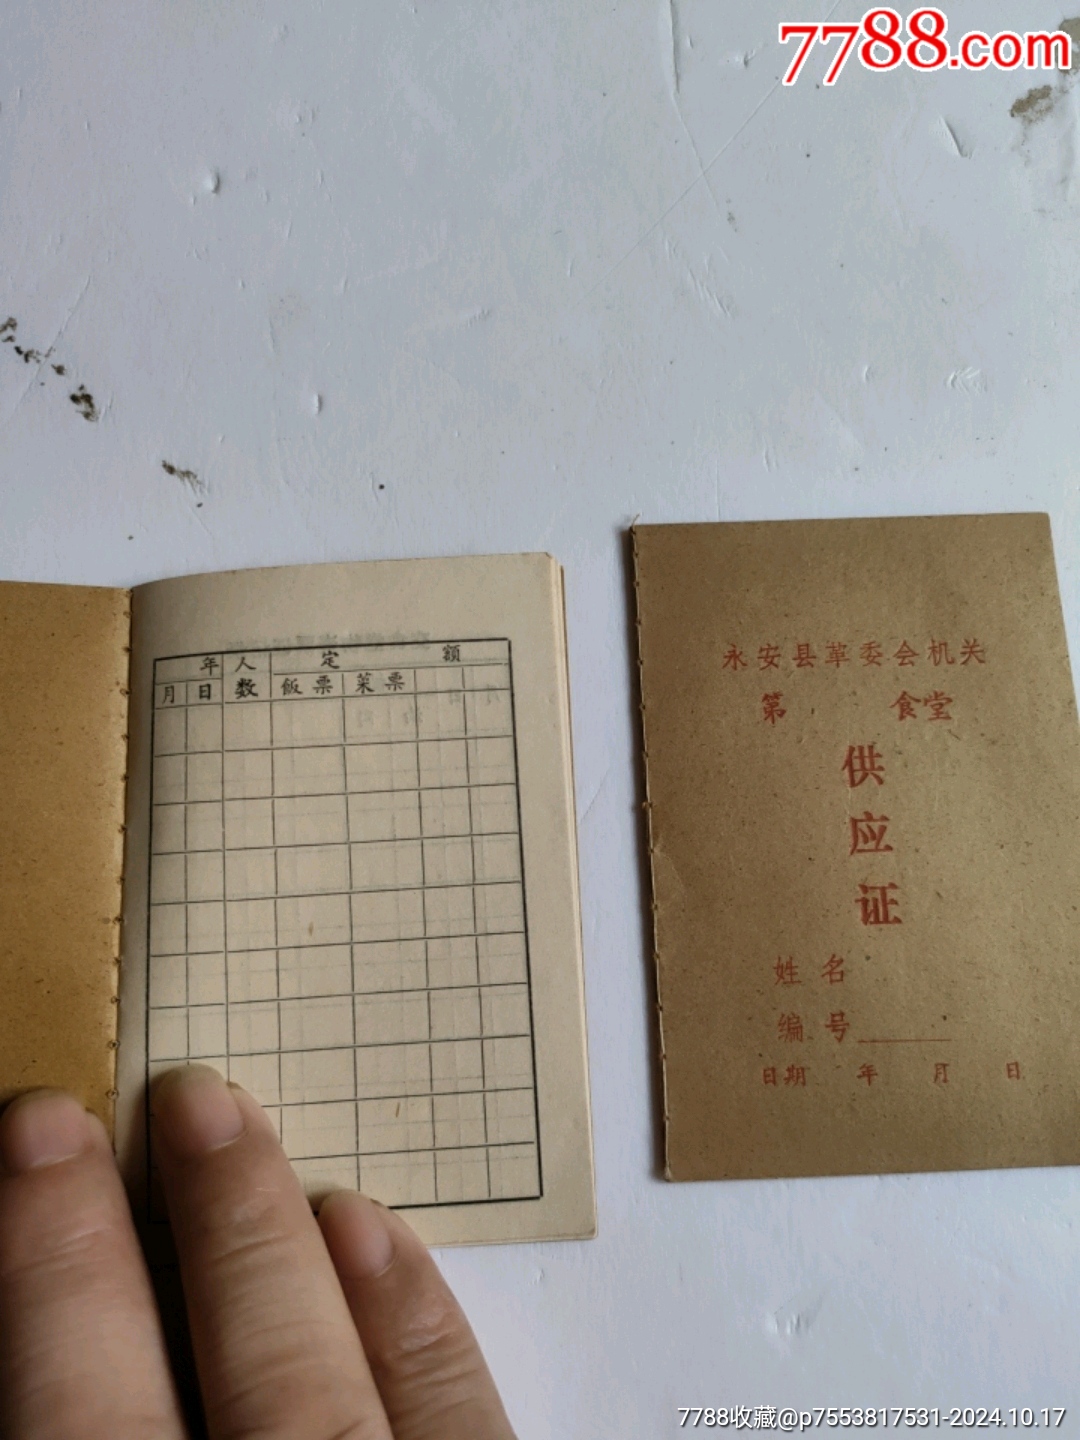 7788.com
年 人 定 额
月 日 数 飯票 菜票
永安县革委会机关
第 食堂
供
应
证
姓名
编号
日期 年 月 日
7788收藏@p7553817531-2024.10.17